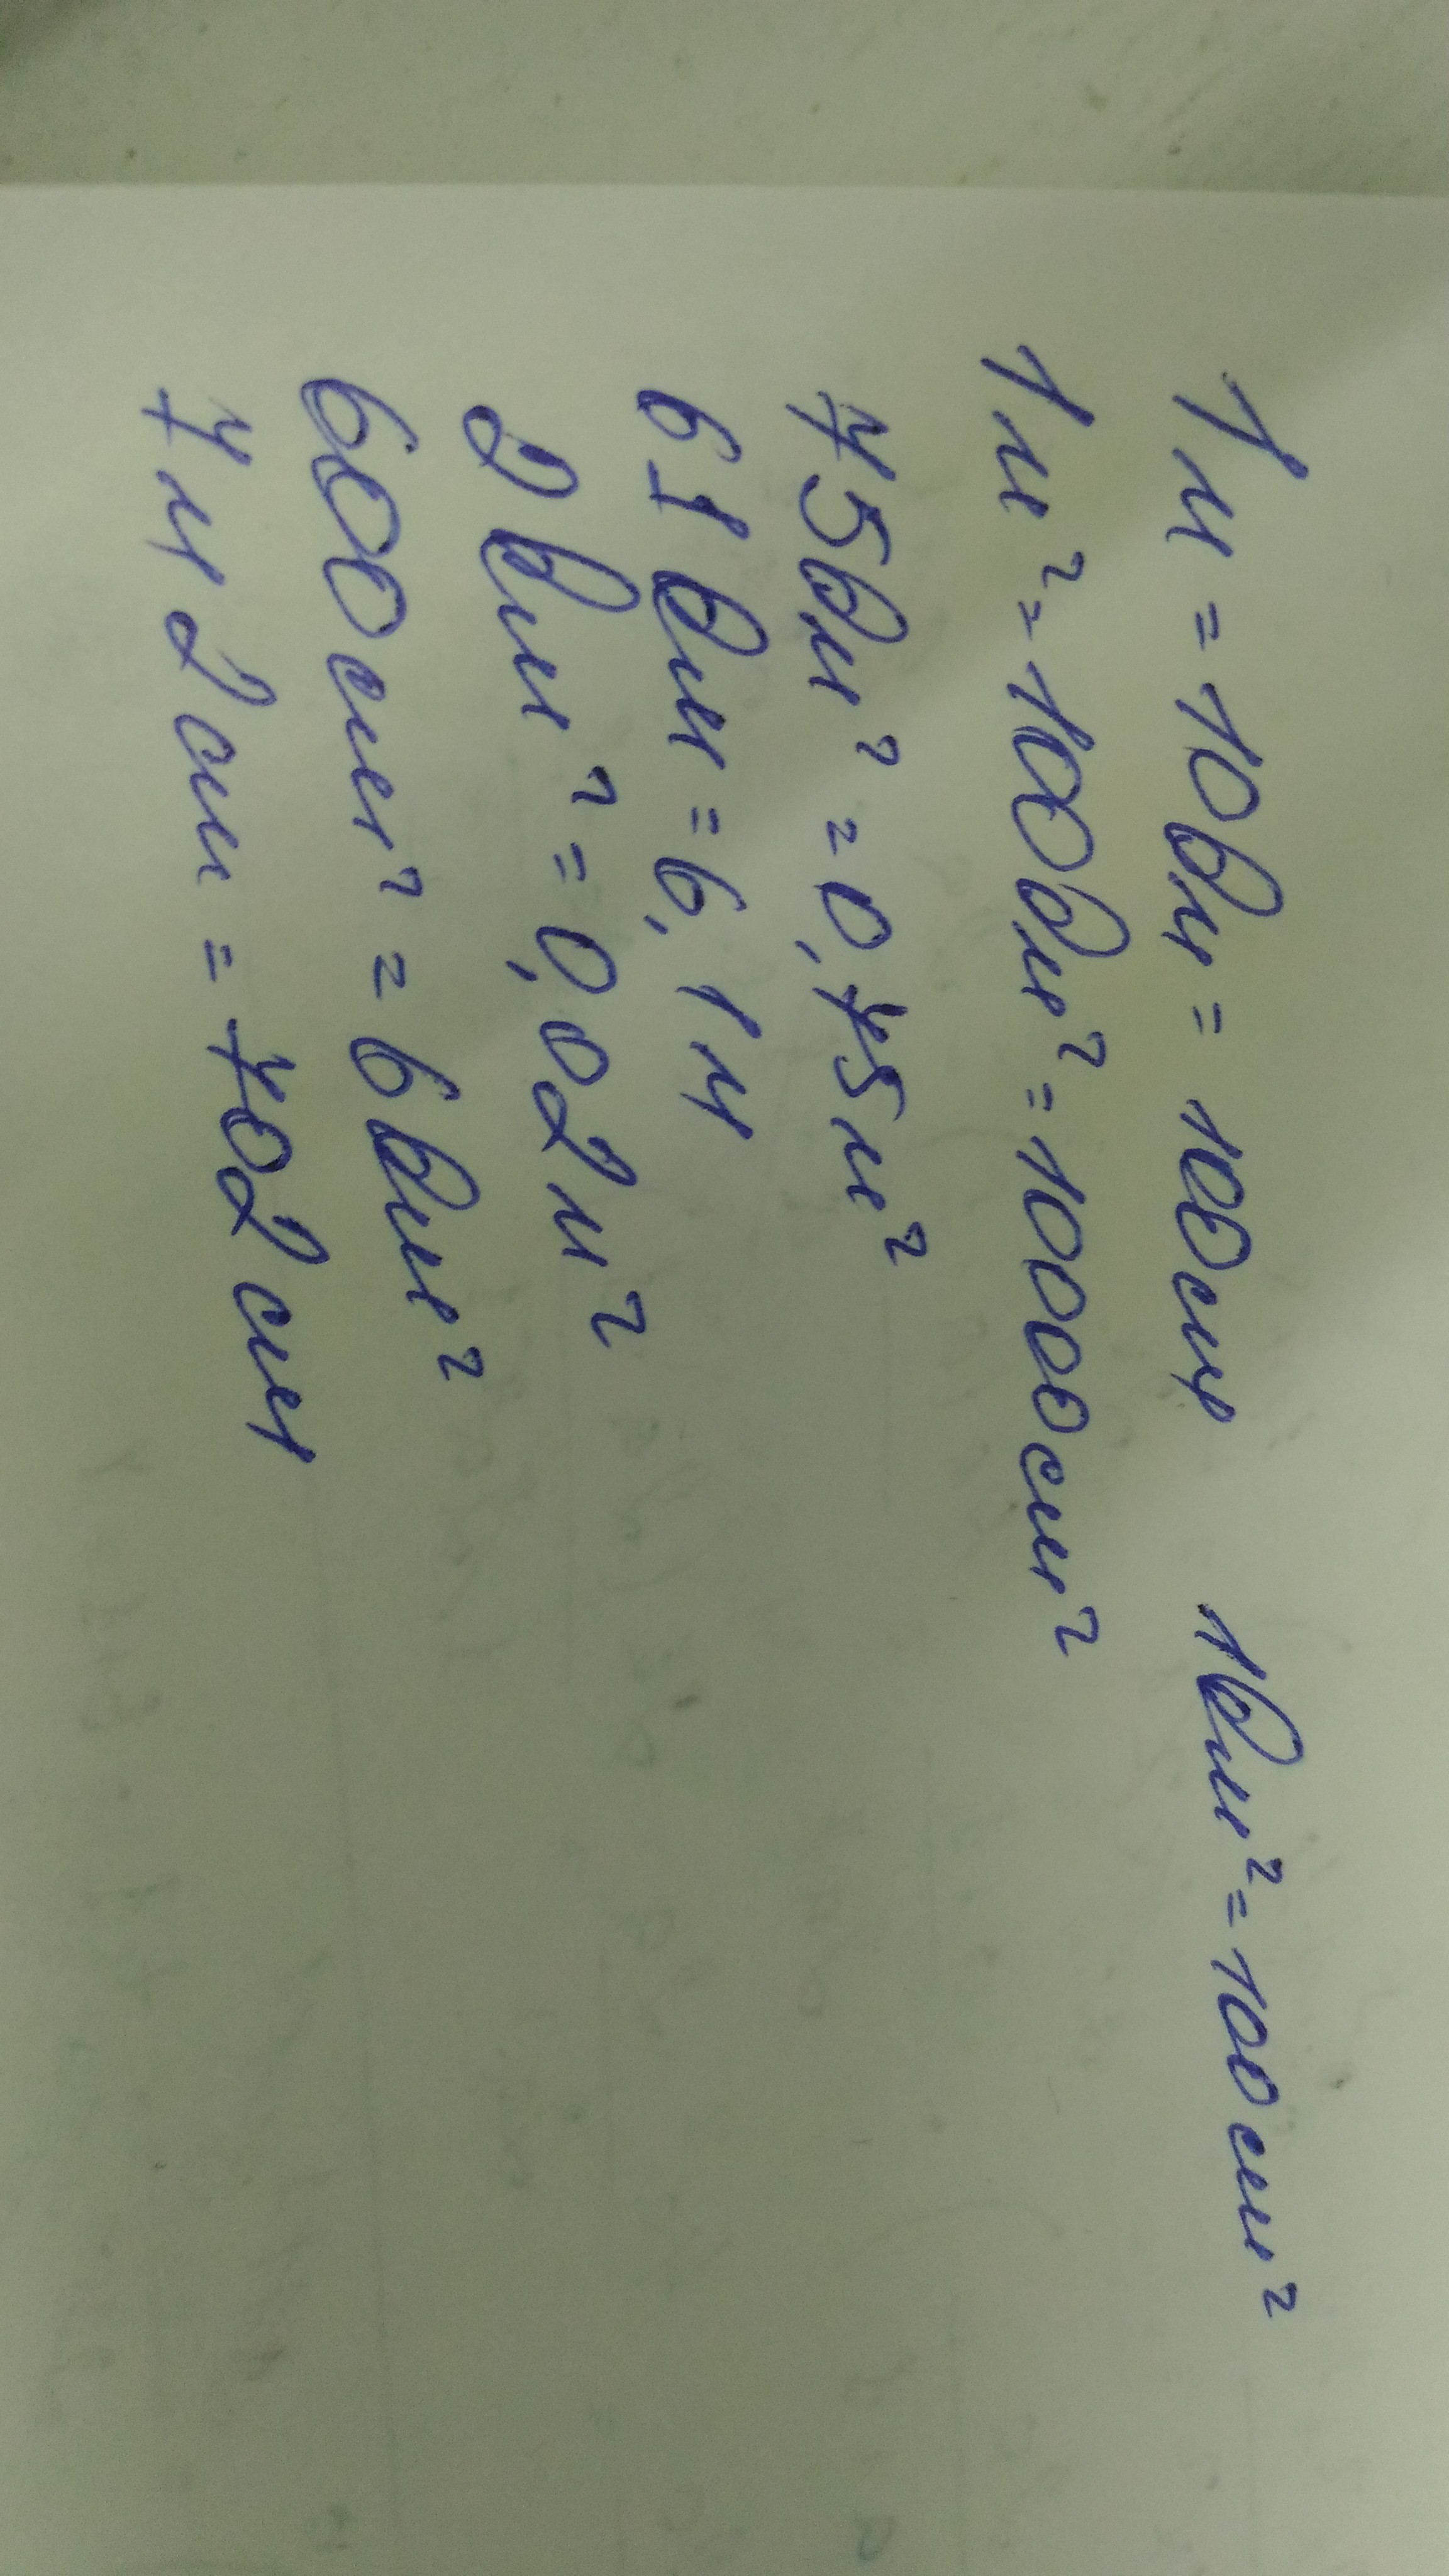 1м = 10дм = 100см 1дм² = 100см²
1м² = 100дм² = 10000см²
75дм² = 0,75м²
61дм = 6,1м
2дм² = 0,02м²
600см² = 6дм²
7м 2см = 702см